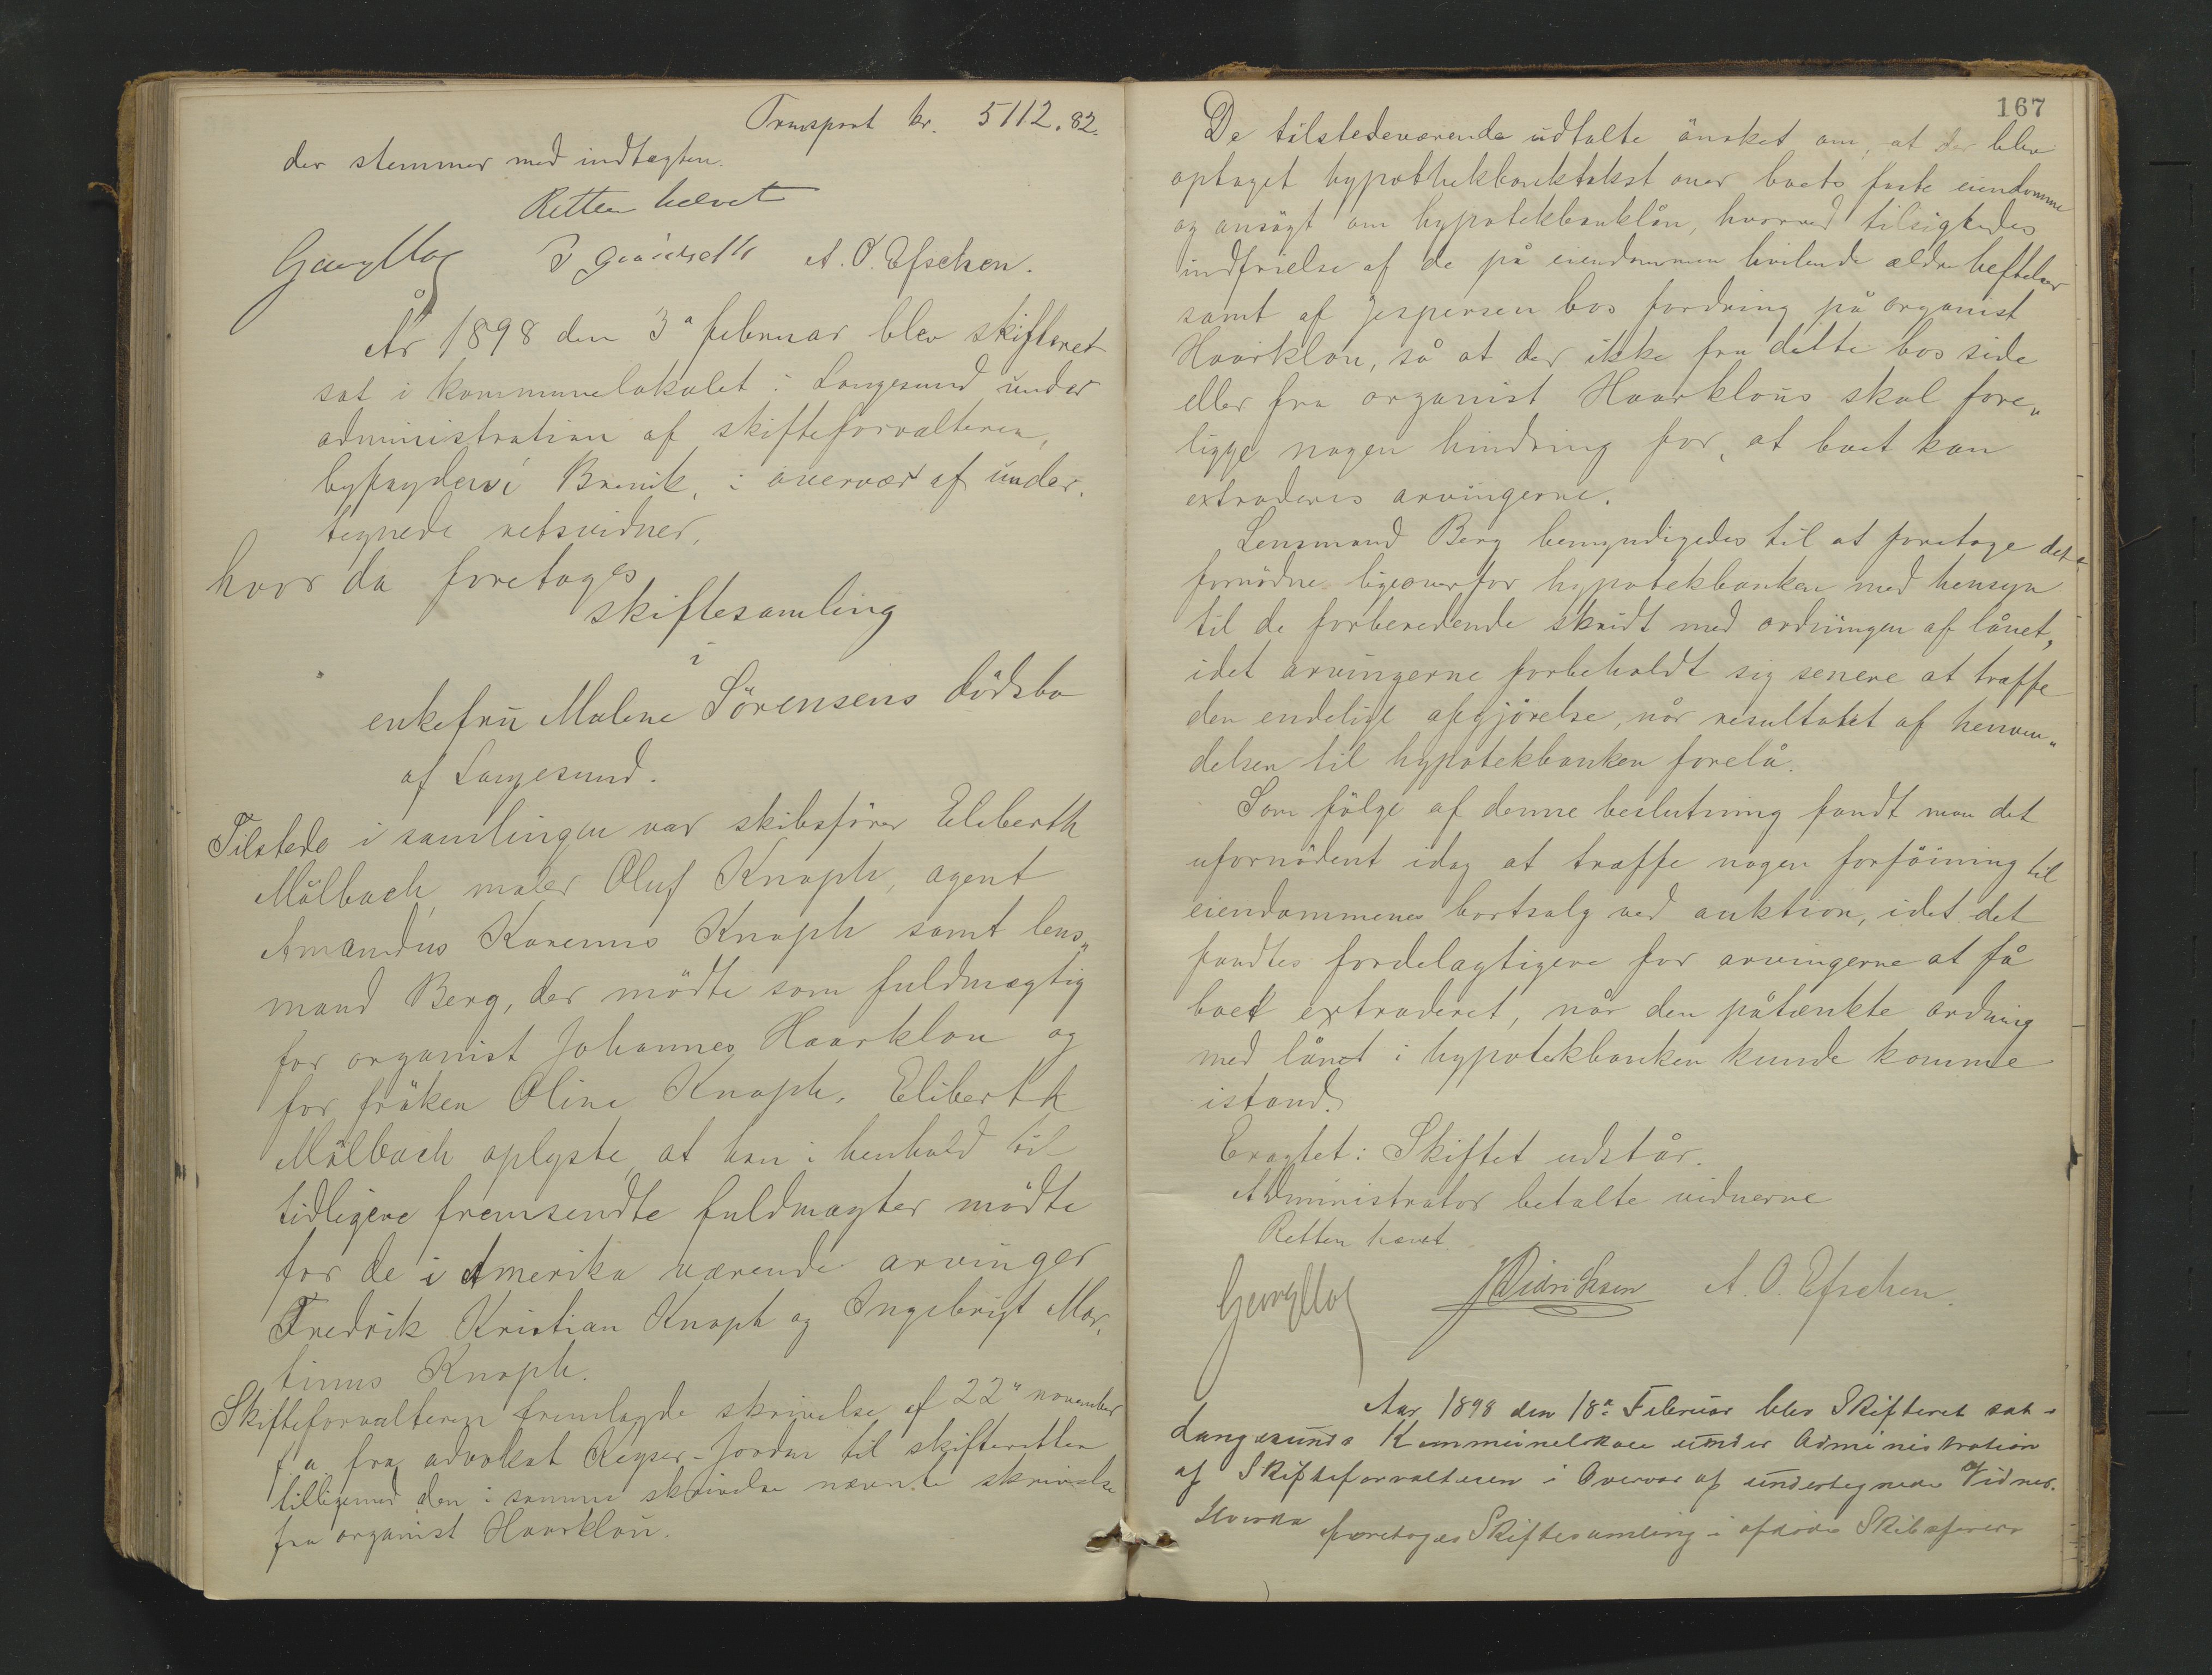 Transport kr. 5112.82.
der stemmer med indtægten.
Retten hævet
A. O. Efschen.
År 1898 den 3ª februar blev skifteret
sat i kommunelokalet i Langesund under
administration af skifteforvalteren,
byfogden i Brevik, i overvær af under,
tegnede retsvidner,
hvor da foretoges
skiftesamling
i
enkefru Malene Sörensens dödsbo
af Langesund.
Tilstede i samlingen var skibsförer Eliberth
Mölbach, maler Oluf Knoph, agent
Amandus Korenius Knoph samt lens„
mand Berg, der mödte som fuldmægtig
for organist Johannes Haarklou og
for fröken Oline Knoph. Eliberth
Mölbach oplyste, at han i henhold til
tidligere fremsendte fuldmagter mödte
for de i Amerika værende arvinger
Fredrik Kristian Knoph og Ingebrigt Mar,
tinus Knoph.
Skifteforvalteren fremlagde skrivelse af 22" november
f. a. fra advokat Keyser-Jordan til skifteretten
tilligemed den i samme skrivelse nævnte skrivelse
fra organist Haarklou.
167
De tilstedeværende udtalte önsket om, at der blev
optaget hypothekbanktakst over boets faste eiendomme
og ansögt om hypotekbanklån, hvorved tilsigtedes
indfrielse af de på eiendommen hvilende ældre heftelser
samt af Jespersen bos fordring på organist
Haarklou, så at der ikke fra dette bos side
eller fra organist Haarklous skal fore„
ligge nogen hindring for, at boet kan
extraderes arvingerne.
Lensmand Berg bemyndigedes til at foretage det
fornödne ligeoverfor hypotekbanken med hensyn
til de forberedende skridt med ordningen af lånet,
idet arvingerne forbeholdt sig senere at træffe
den endelige afgjörelse, når resultatet af henven„
delsen til hypotekbanken forelå.
Som fölge af denne beslutning fandt man det
ufornödent idag at træffe nogen forföining til
eiendommenes bortsalg ved auktion, idet det
fandtes fordelagtigere for arvingerne at få
boet extraderet, når den påtænkte ordning
med lånet i hypotekbanken kunde komme
istand.
Eragtet: Skiftet udstår.
Administrator betalte vidnerne
Retten hævet.
J Didriksen A. O. Efschen.
Aar 1898 den 18ª Februar blev Skifteret sat i
Langesunds Kommunelokale under Administration
af Skifteforvalteren i Overvær af undertegnede Vidner.
Hvorda foretoges Skiftesamling i afdøde Skibsførers